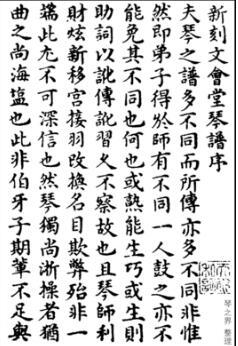 新刻文會堂琴譜序
夫琴之譜多不同而所傳亦多不同非惟
然即弟子得於師有不同一人鼓之亦不
能免其不同也何也或熟能生巧或生則
助詞以訛傳訛習久不察故也且琴師利
財炫新移宮接羽改換名目欺弊殆非一
端此尤不可深信也然琴獨尚浙操者猶
曲之尚海塩也此非伯牙子期輩不足與
琴之界 整理